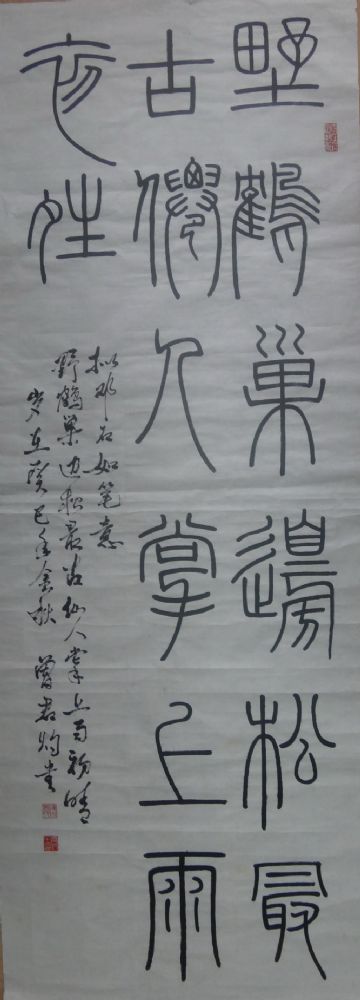 野鶴巢邊松最
古僊人掌上雨
初夝
拟邓石如笔意
野鹤巢边松最古仙人掌上雨初晴
岁在癸巳年金秋 曾君灼书